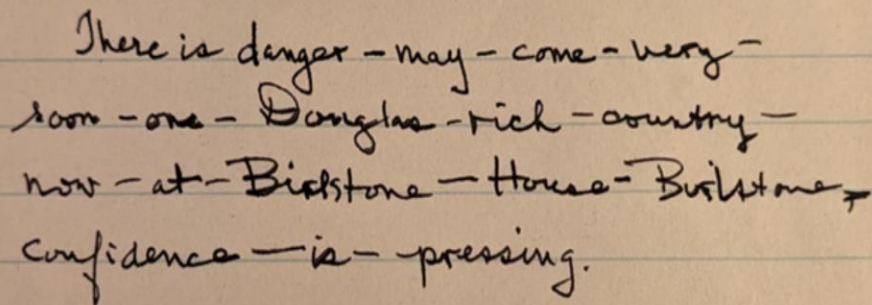 There is danger – may – come – very –
soon – one – Douglas – rich – country –
now – at – Birlstone – House – Birlstone –
confidence – is – pressing.